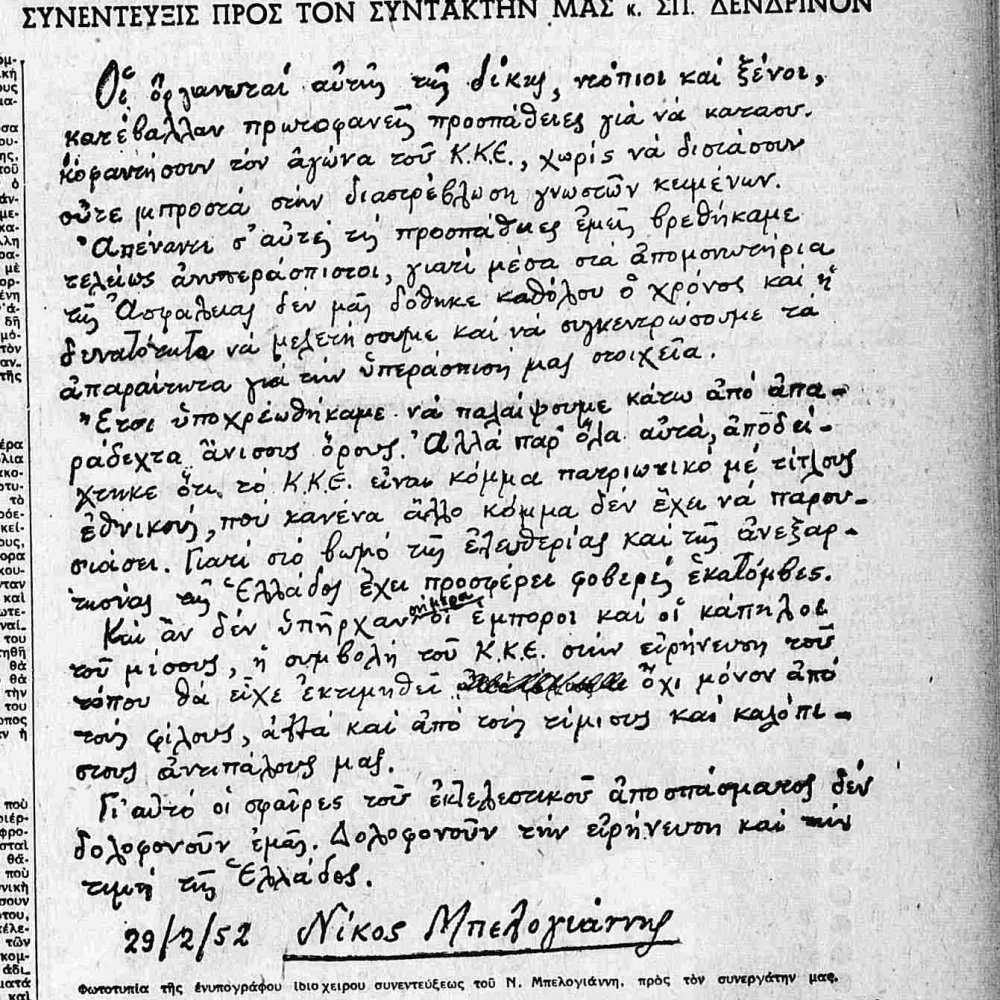 ΣΥΝΕΝΤΕΥΞΙΣ ΠΡΟΣ ΤΟΝ ΣΥΝΤΑΚΤΗΝ ΜΑΣ κ. ΣΠ. ΔΕΝΔΡΙΝΟΝ
Οἱ ὀργανωταί αὐτῆς τῆς δίκης, ντόπιοι καί ξένοι,
κατέβαλλαν πρωτοφανεῖς προσπάθειες γιά νά κατασυ-
κοφαντήσουν τόν ἀγώνα τοῦ Κ.Κ.Ε., χωρίς νά διστάσουν
οὔτε μπροστά στήν διαστρέβλωση γνωστῶν κειμένων.
Ἀπέναντι σ' αὐτές τίς προσπάθειες ἐμεῖς βρεθήκαμε
τελείως ἀνυπεράσπιστοι, γιατί μέσα στά ἀπομονωτήρια
τῆς Ἀσφαλειας δέν μᾶς δόθηκε καθόλου ὁ χρόνος καί ἡ
δυνατότητα νά μελετήσουμε καί νά συγκεντρώσουμε τά
ἀπαραίτητα γιά τήν ὑπεράσπισή μας στοιχεῖα.
Ἔτσι ὑποχρεωθήκαμε νά παλαίψουμε κάτω ἀπό ἀπα-
ράδεχτα ἄνισους ὅρους. Ἀλλά παρ' ὅλα αὐτά, ἀποδεί-
χτηκε ὅτι τό Κ.Κ.Ε. εἶναι κόμμα πατριωτικό μέ τίτλους
ἐθνικούς, πού κανένα ἄλλο κόμμα δέν ἔχει νά παρου-
σιάσει. Γιατί στό βωμό τῆς ἐλευθερίας καί τῆς ἀνεξαρ-
τησίας τῆς Ἑλλάδος ἔχει προσφέρει φοβερές ἑκατόμβες.
Καί ἄν δέν ὑπῆρχαν σήμερα οἱ ἔμποροι καί οἱ κάπηλοι
τοῦ μίσους, ἡ συμβολή τοῦ Κ.Κ.Ε. στήν εἰρήνευση τοῦ
τόπου θά εἶχε ἐκτιμηθεῖ ὄχι μόνον ἀπό
τούς φίλους, ἀλλά καί ἀπό τούς τίμιους καί καλόπι-
στους ἀντιπάλους μας.
Γι' αὐτό οἱ σφαῖρες τοῦ ἐκτελεστικοῦ ἀποσπάσματος δέν
δολοφονοῦν ἐμᾶς. Δολοφονοῦν τήν εἰρήνευση καί τήν
τιμή τῆς Ἑλλάδος.
29/2/52 Νίκος Μπελογιάννης
Φωτοτυπία τῆς ἐνυπογράφου ἰδιοχείρου συνεντεύξεως τοῦ Ν. Μπελογιάννη, πρὸς τὸν συνεργάτην μας.